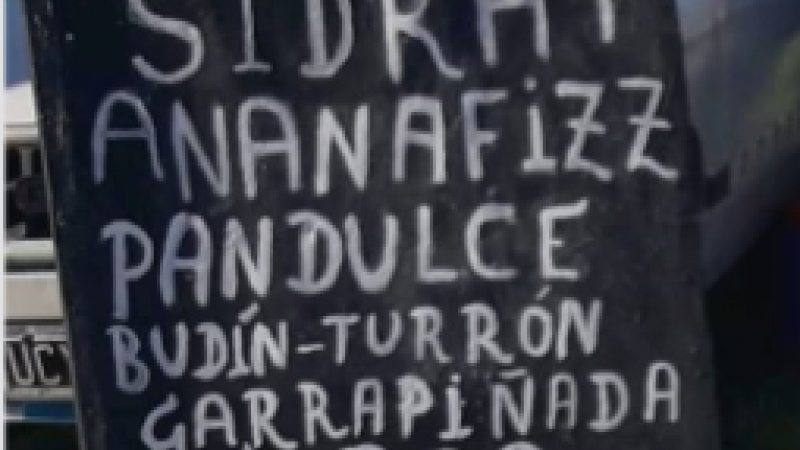 SIDRAY
ANANAFiZZ
PANDULCE
BUDÍN-TURRÓN
GARRAPiÑADA
UCY